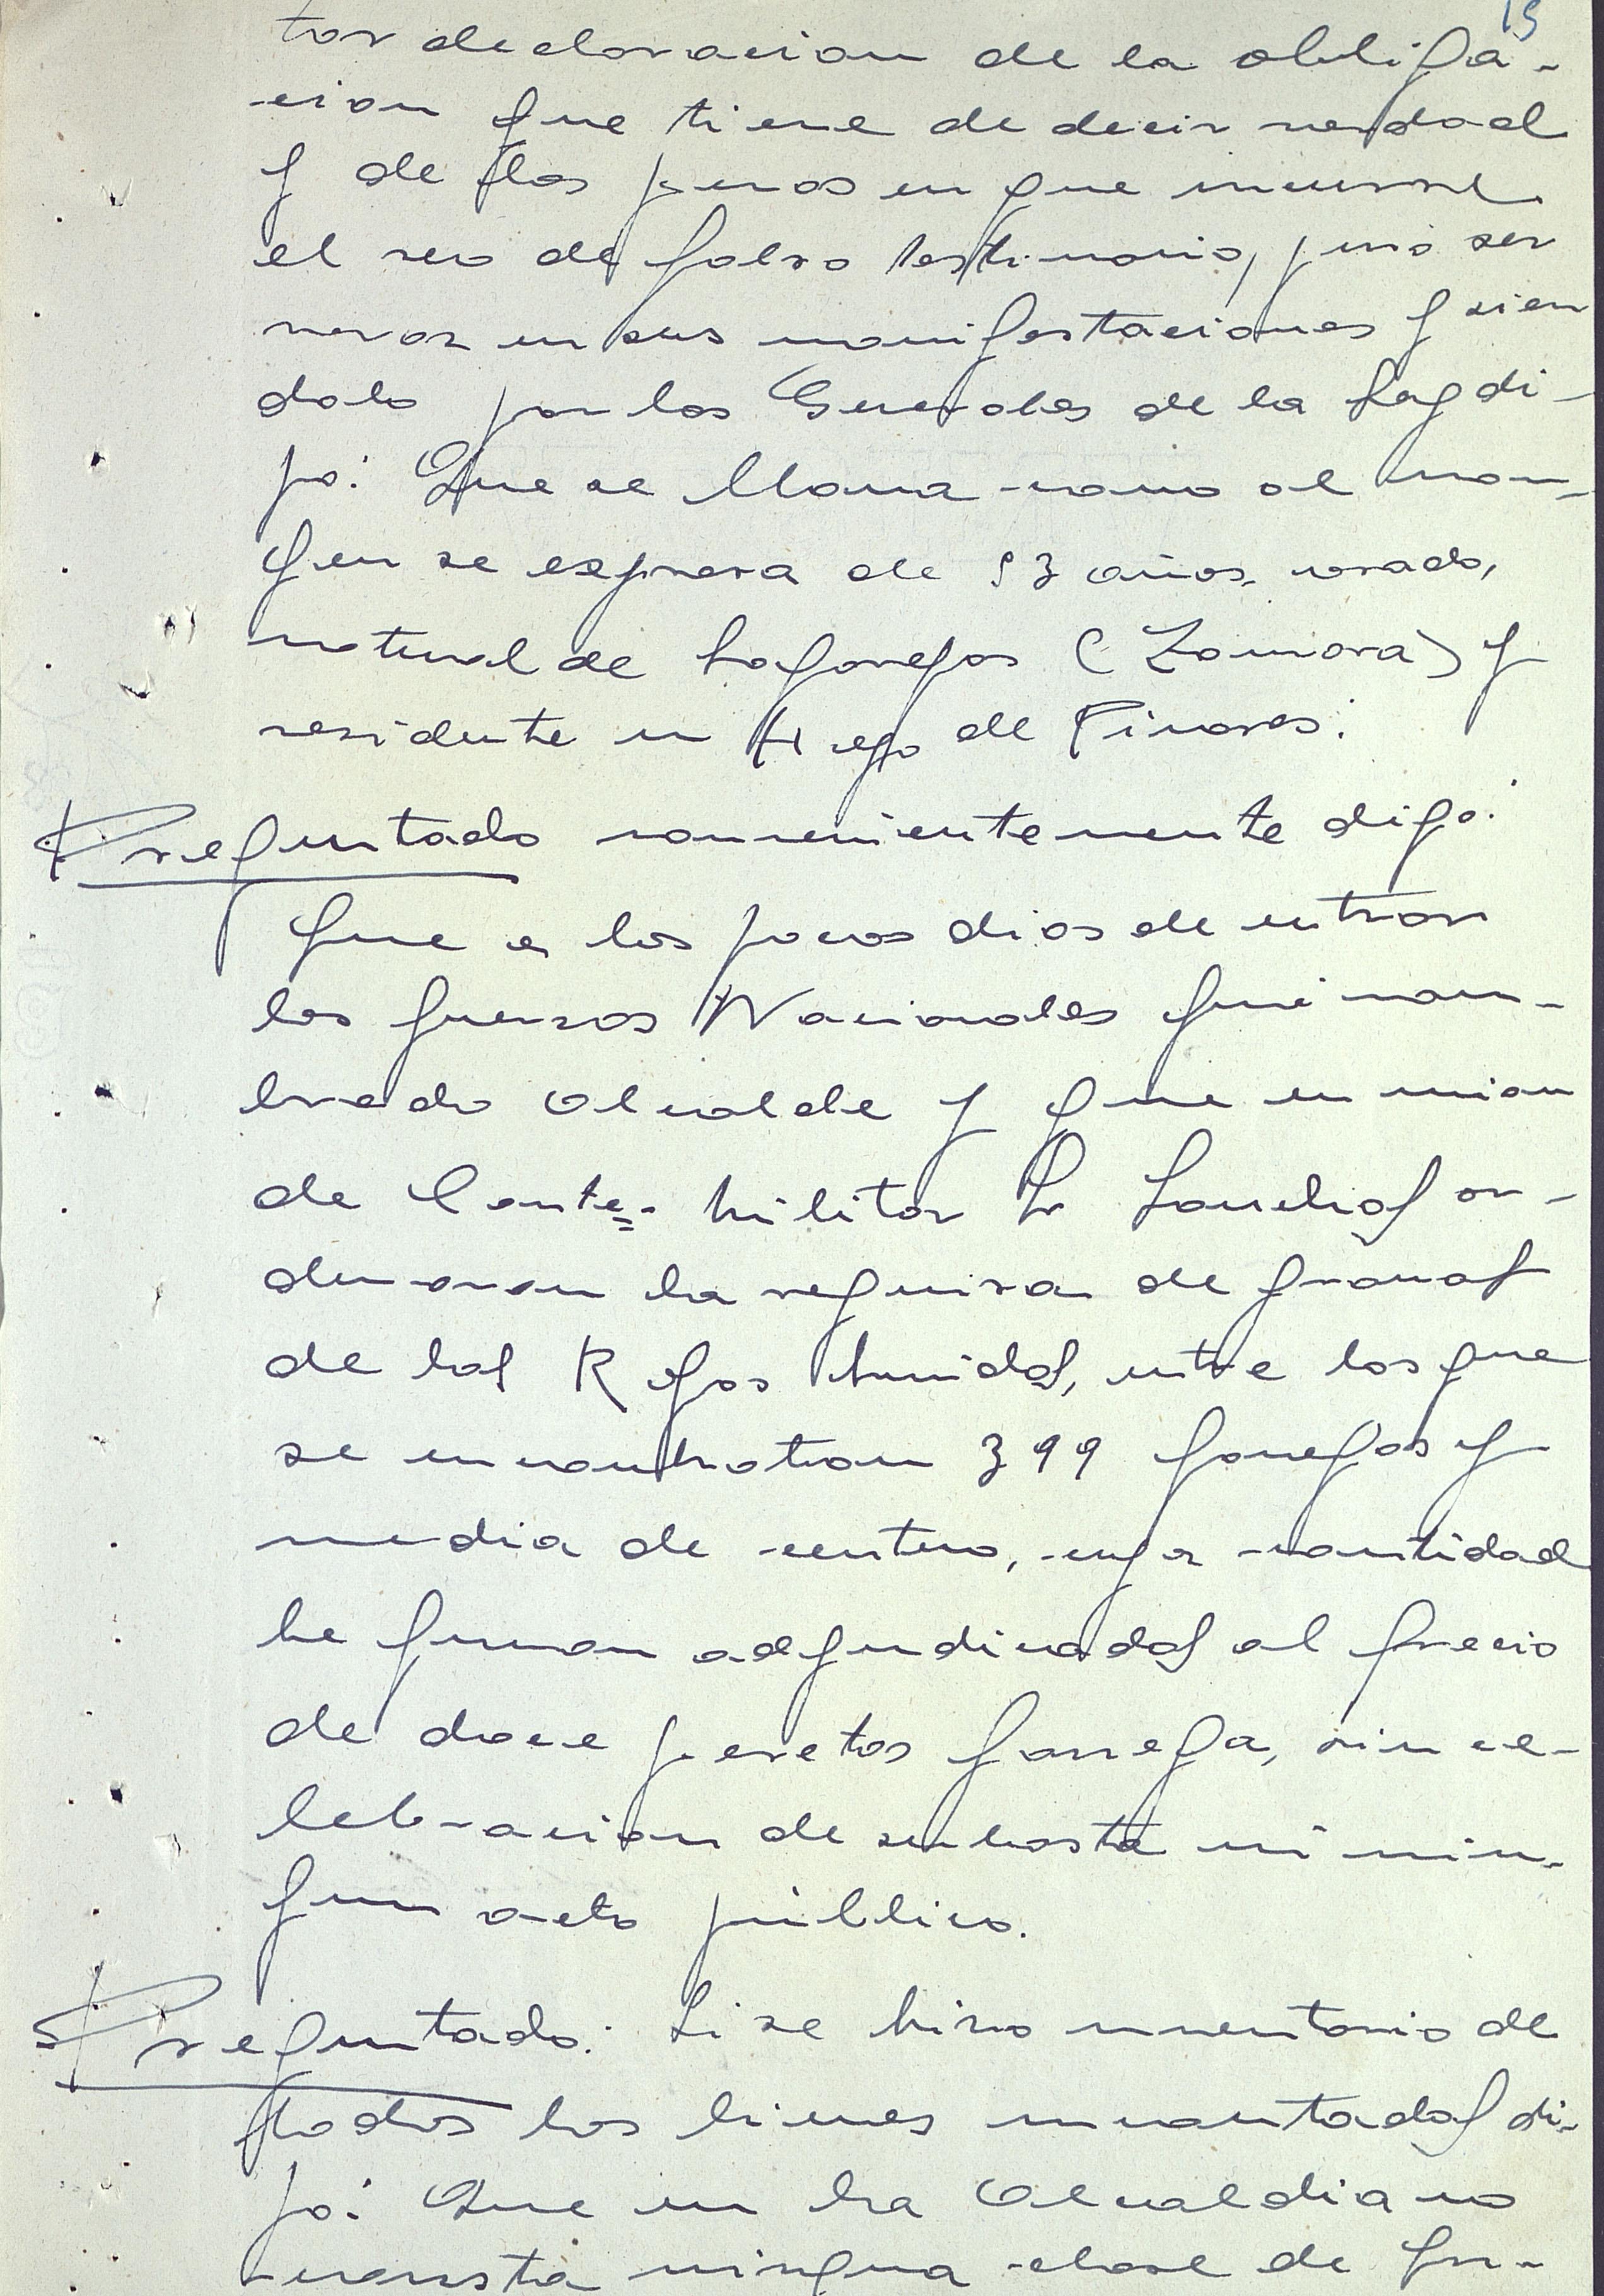 15
tar declaracion de la obliga-
cion que tiene de decir verdad
y de las penas en que incurre
el reo de falso testimonio, juró ser
veraz en sus manifestaciones y sien
dolo por las Generales de la Ley di-
jo: Que se llama como al mar-
gen se expresa de 53 años, casado,
natural de (Zamora) y
residente en Hoyo de Pinares:
Preguntado convenientemente dijo:
Que a los pocos dias de entrar
las fuerzas Nacionales fué nom-
brado Alcalde y que en union
de Comte. Militar Sr Sanchos or-
denaron la requisa de granos
de los Rojos huidos, entre los que
se encontraban 399 fanegas y
media de centeno, cuya cantidad
le fueron adjudicados al precio
de doce pesetas fanega, sin ce-
lebracion de subasta ni nin-
gun acto público.
Preguntado: Si se hizo inventario de
todos los bienes incautados di-
jo: Que en la Alcaldia no
consta ningua clase de in-